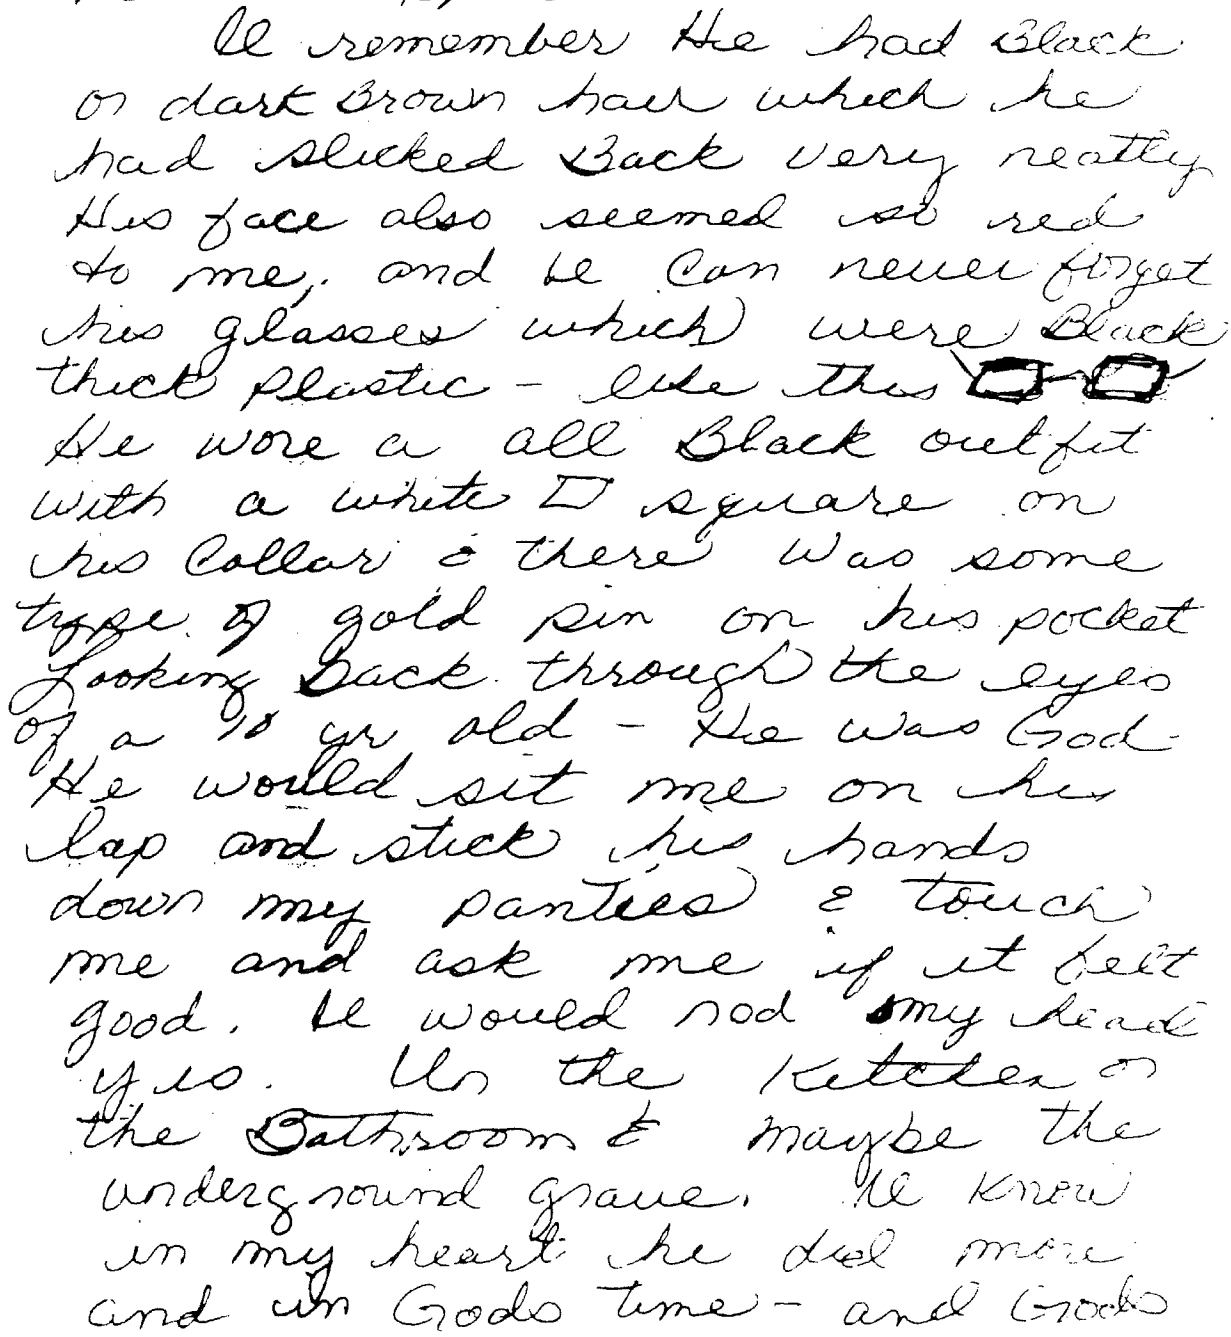 I remember He had Black
or dark Brown hair which he
had slicked Back very neatly
His face also seemed so red
to me, and I can never forget
his glasses which were Black
thick plastic - like this
He wore a all Black outfit
with a white square on
his collar & there was some
type of gold pin on his pocket
Looking back through the eyes
of a 10 yr old - He was God
He would sit me on his
lap and stick his hands
down my panties & touch
me and ask me if it felt
good. I would nod my head
yes. In the Kitchen or
the Bathroom & maybe the
underground grave. I know
in my heart he did more
and in Gods time - and Gods